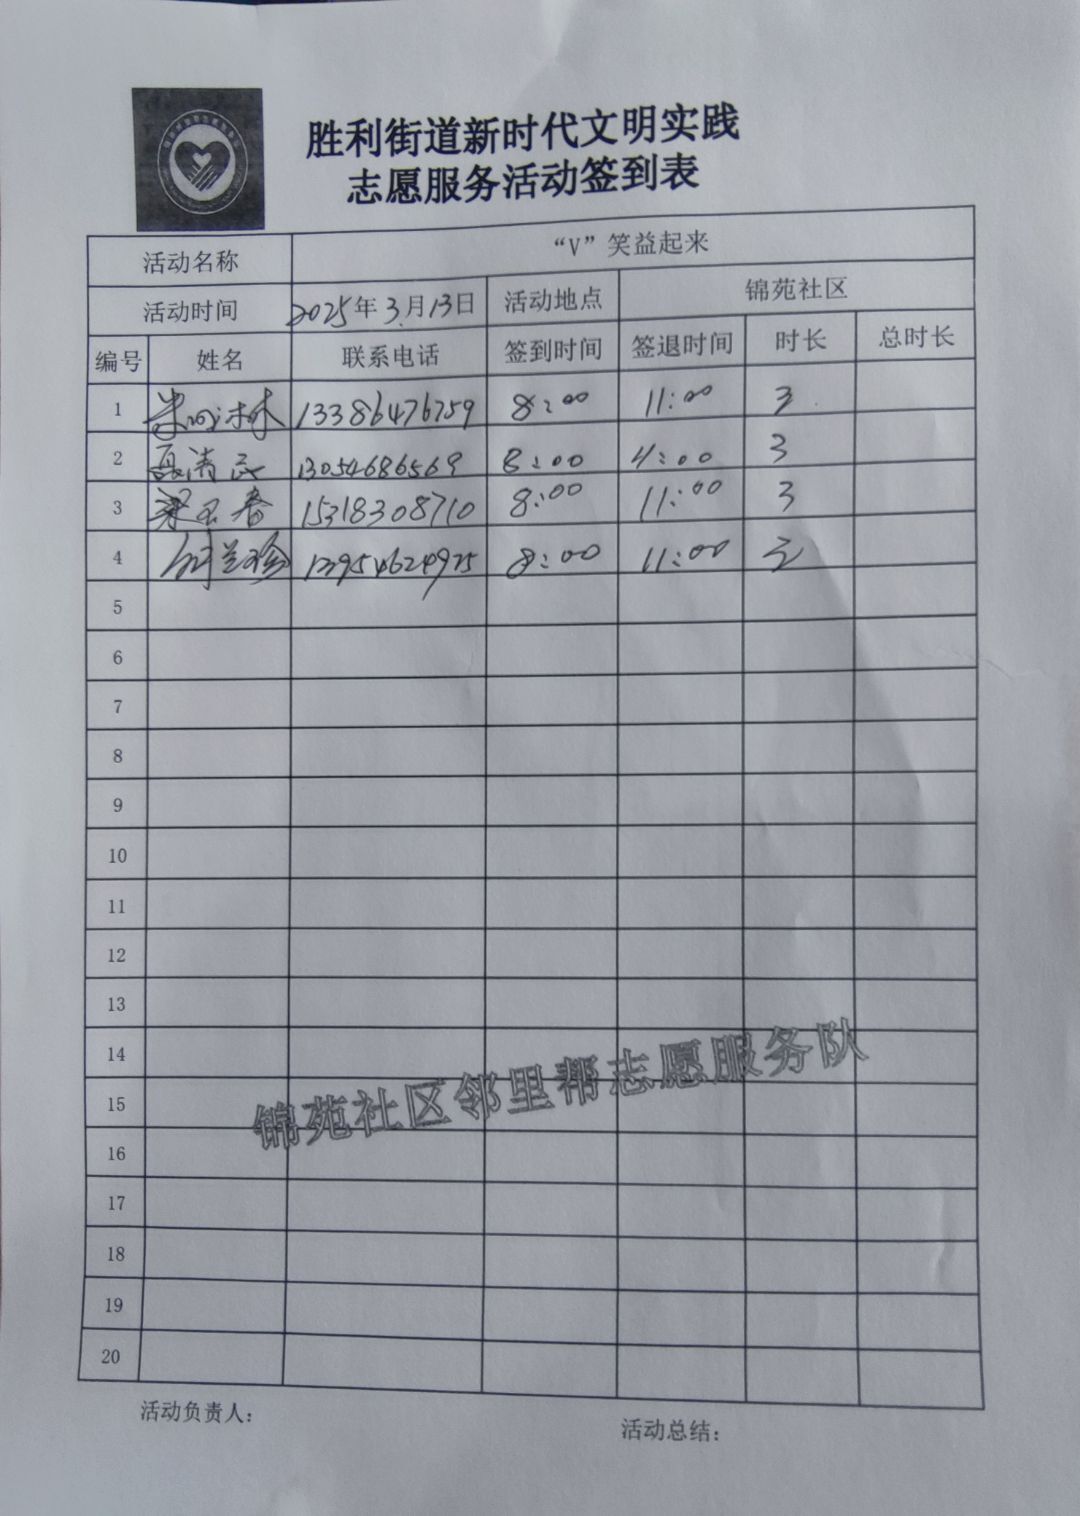 胜利街道新时代文明实践
志愿服务活动签到表
活动名称 “V”笑益起来
活动时间 2025年3月13日 活动地点 锦苑社区
编号 姓名 联系电话 签到时间 签退时间 时长 总时长
1 13386476759 8:00 11:00 3
2 聂清民 13054686569 8:00 4:00 3
3 梁玉春 15318308710 8:00 11:00 3
4 8:00 11:00 3
5
6
7
8
9
10
11
12
13
14
15
16
17
18
19
20
锦苑社区邻里帮志愿服务队
活动负责人：
活动总结：